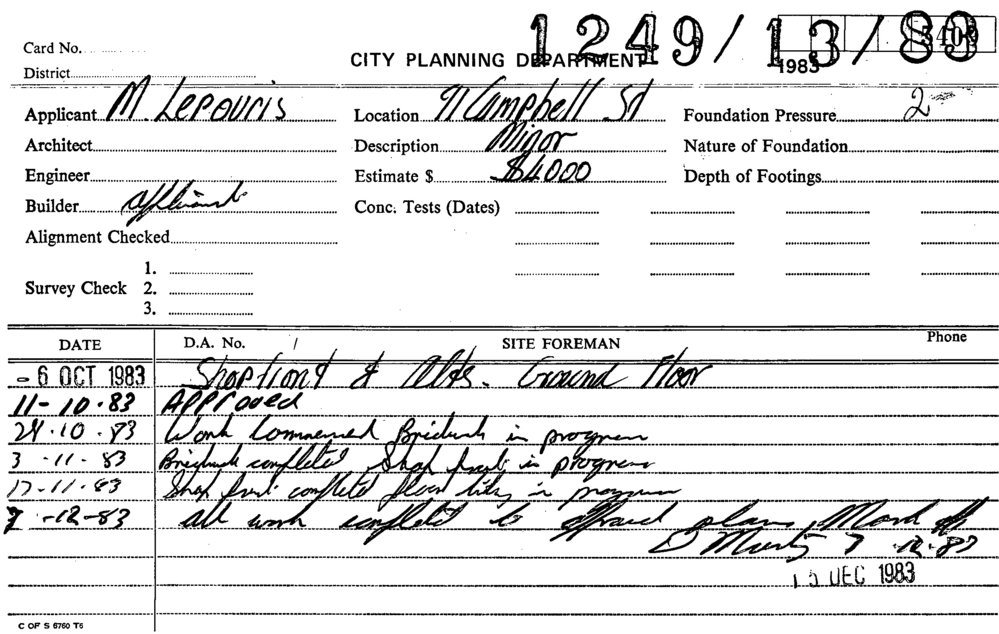 1249/13/83
Card No.
CITY PLANNING DEPARTMENT
1983
District
Applicant M. Lepouris Location 71 Campbell St Foundation Pressure 2
Architect Description Minor Nature of Foundation
Engineer Estimate $ $4000 Depth of Footings
Builder applicant Conc. Tests (Dates)
Alignment Checked
1.
Survey Check 2.
3.
DATE D.A. No. / SITE FOREMAN Phone
- 6 OCT 1983 Shopfront & Alts. Ground Floor
11-10.83 APPROVED
24.10.83 Work Commenced Brickwork in progress
3-11-83 Brickwork completed Shop front in progress
17-11-83 Shop front completed floor tiling in progress
7-12-83 All work complete to approved plans, Mark off
7-12-83
15 DEC 1983
C OF S 6760 T6